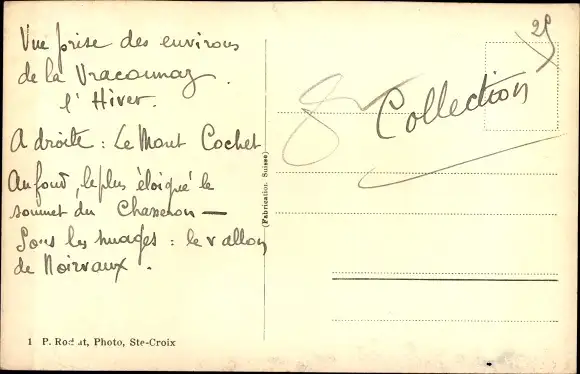 Vue prise des environs
de la Vraconnaz.
l'Hiver.
A droite : Le Mont Cochet
Au fond, le plus éloigné le
sommet du Chasseron —
Sous les nuages : le vallon
de Noirvaux.
1 P. Rod ut, Photo, Ste-Croix
(Fabrication Suisse)
Collection